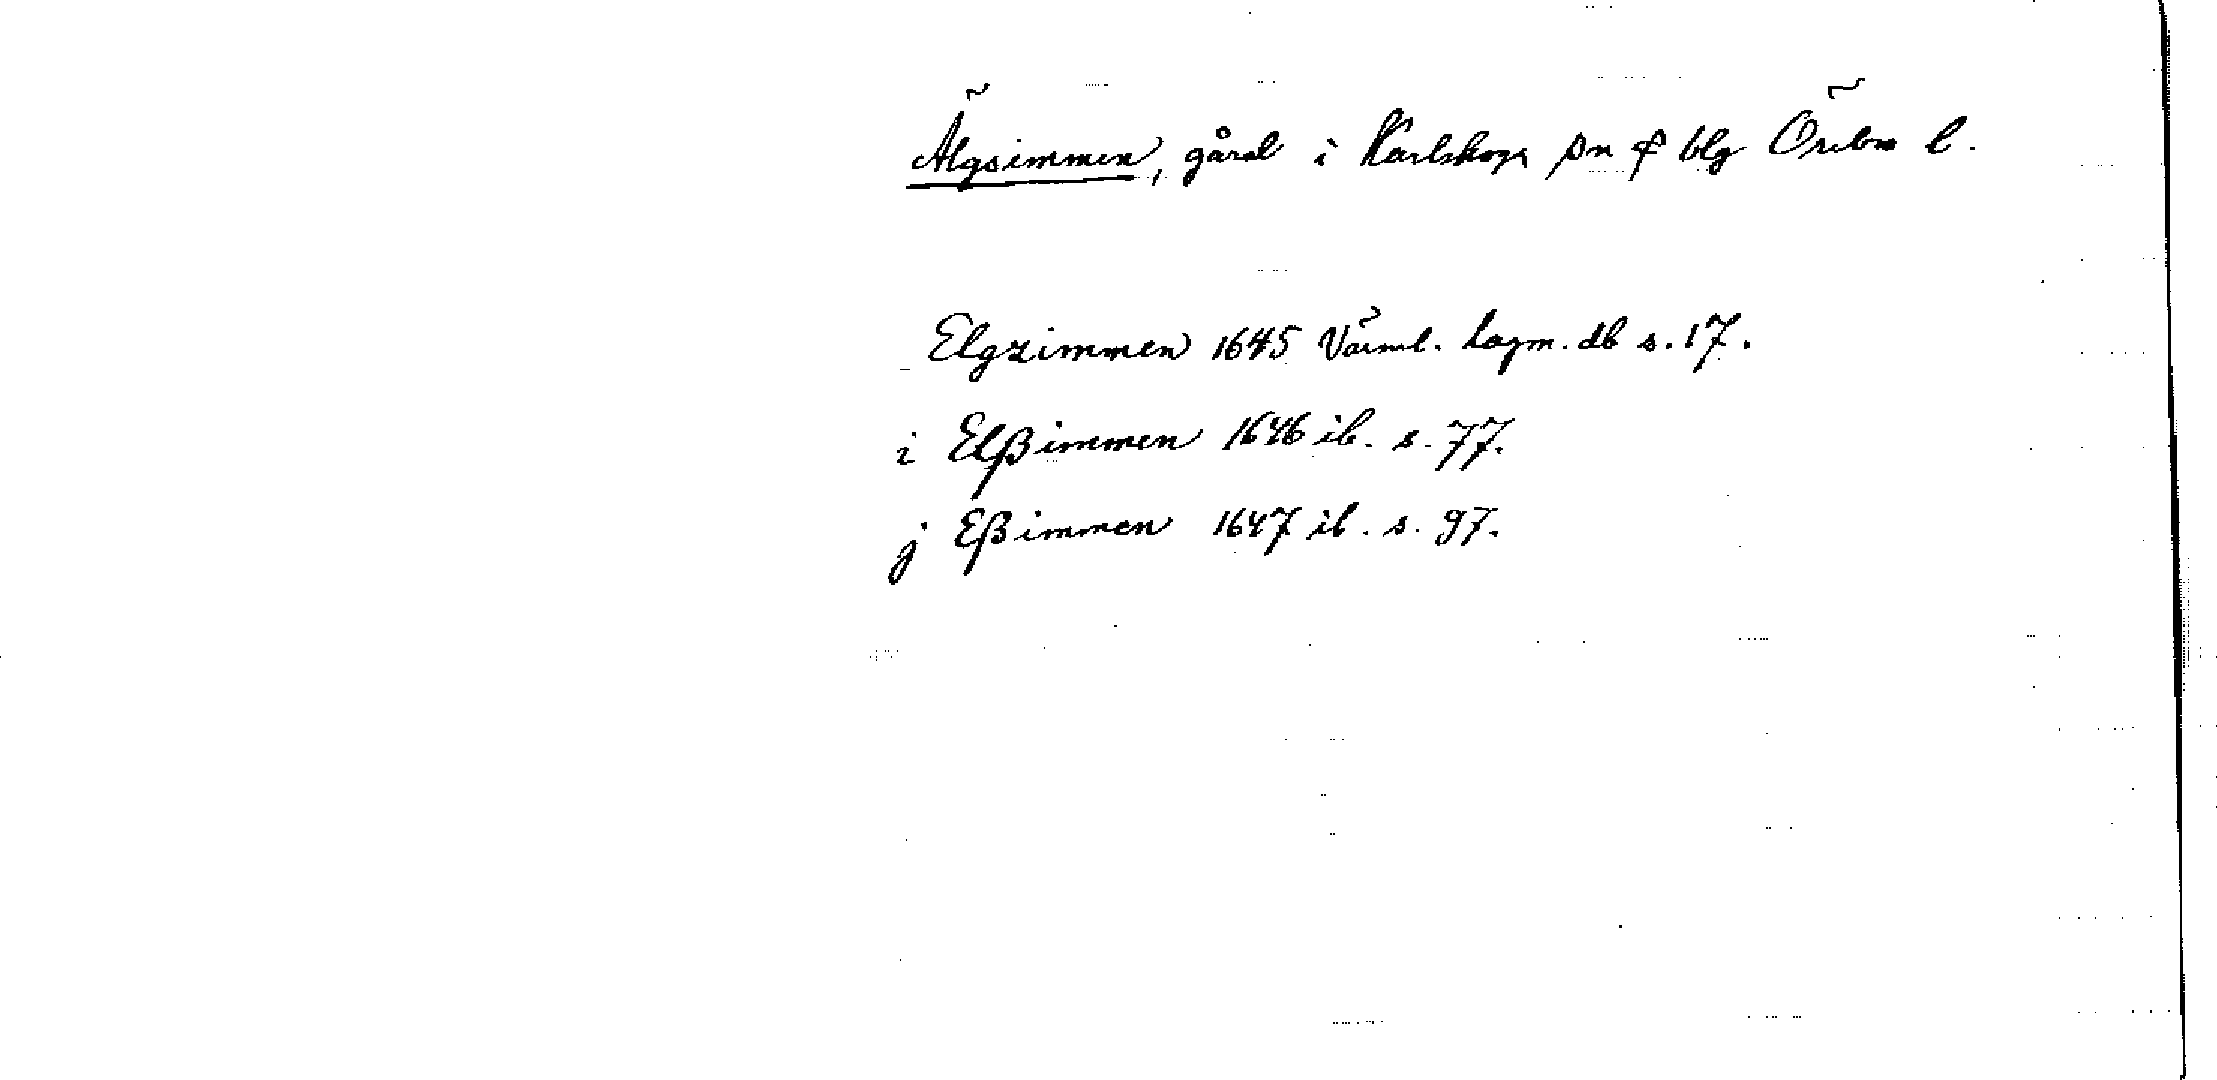 Älgsimmen, gård i Karlskoga sn & blg Örebro l.
Elgzimmen 1645 Värml. lagm. db s. 17.
i Elßimmen 1646 ib. s. 77.
j Eßimmen 1647 ib. s. 97.